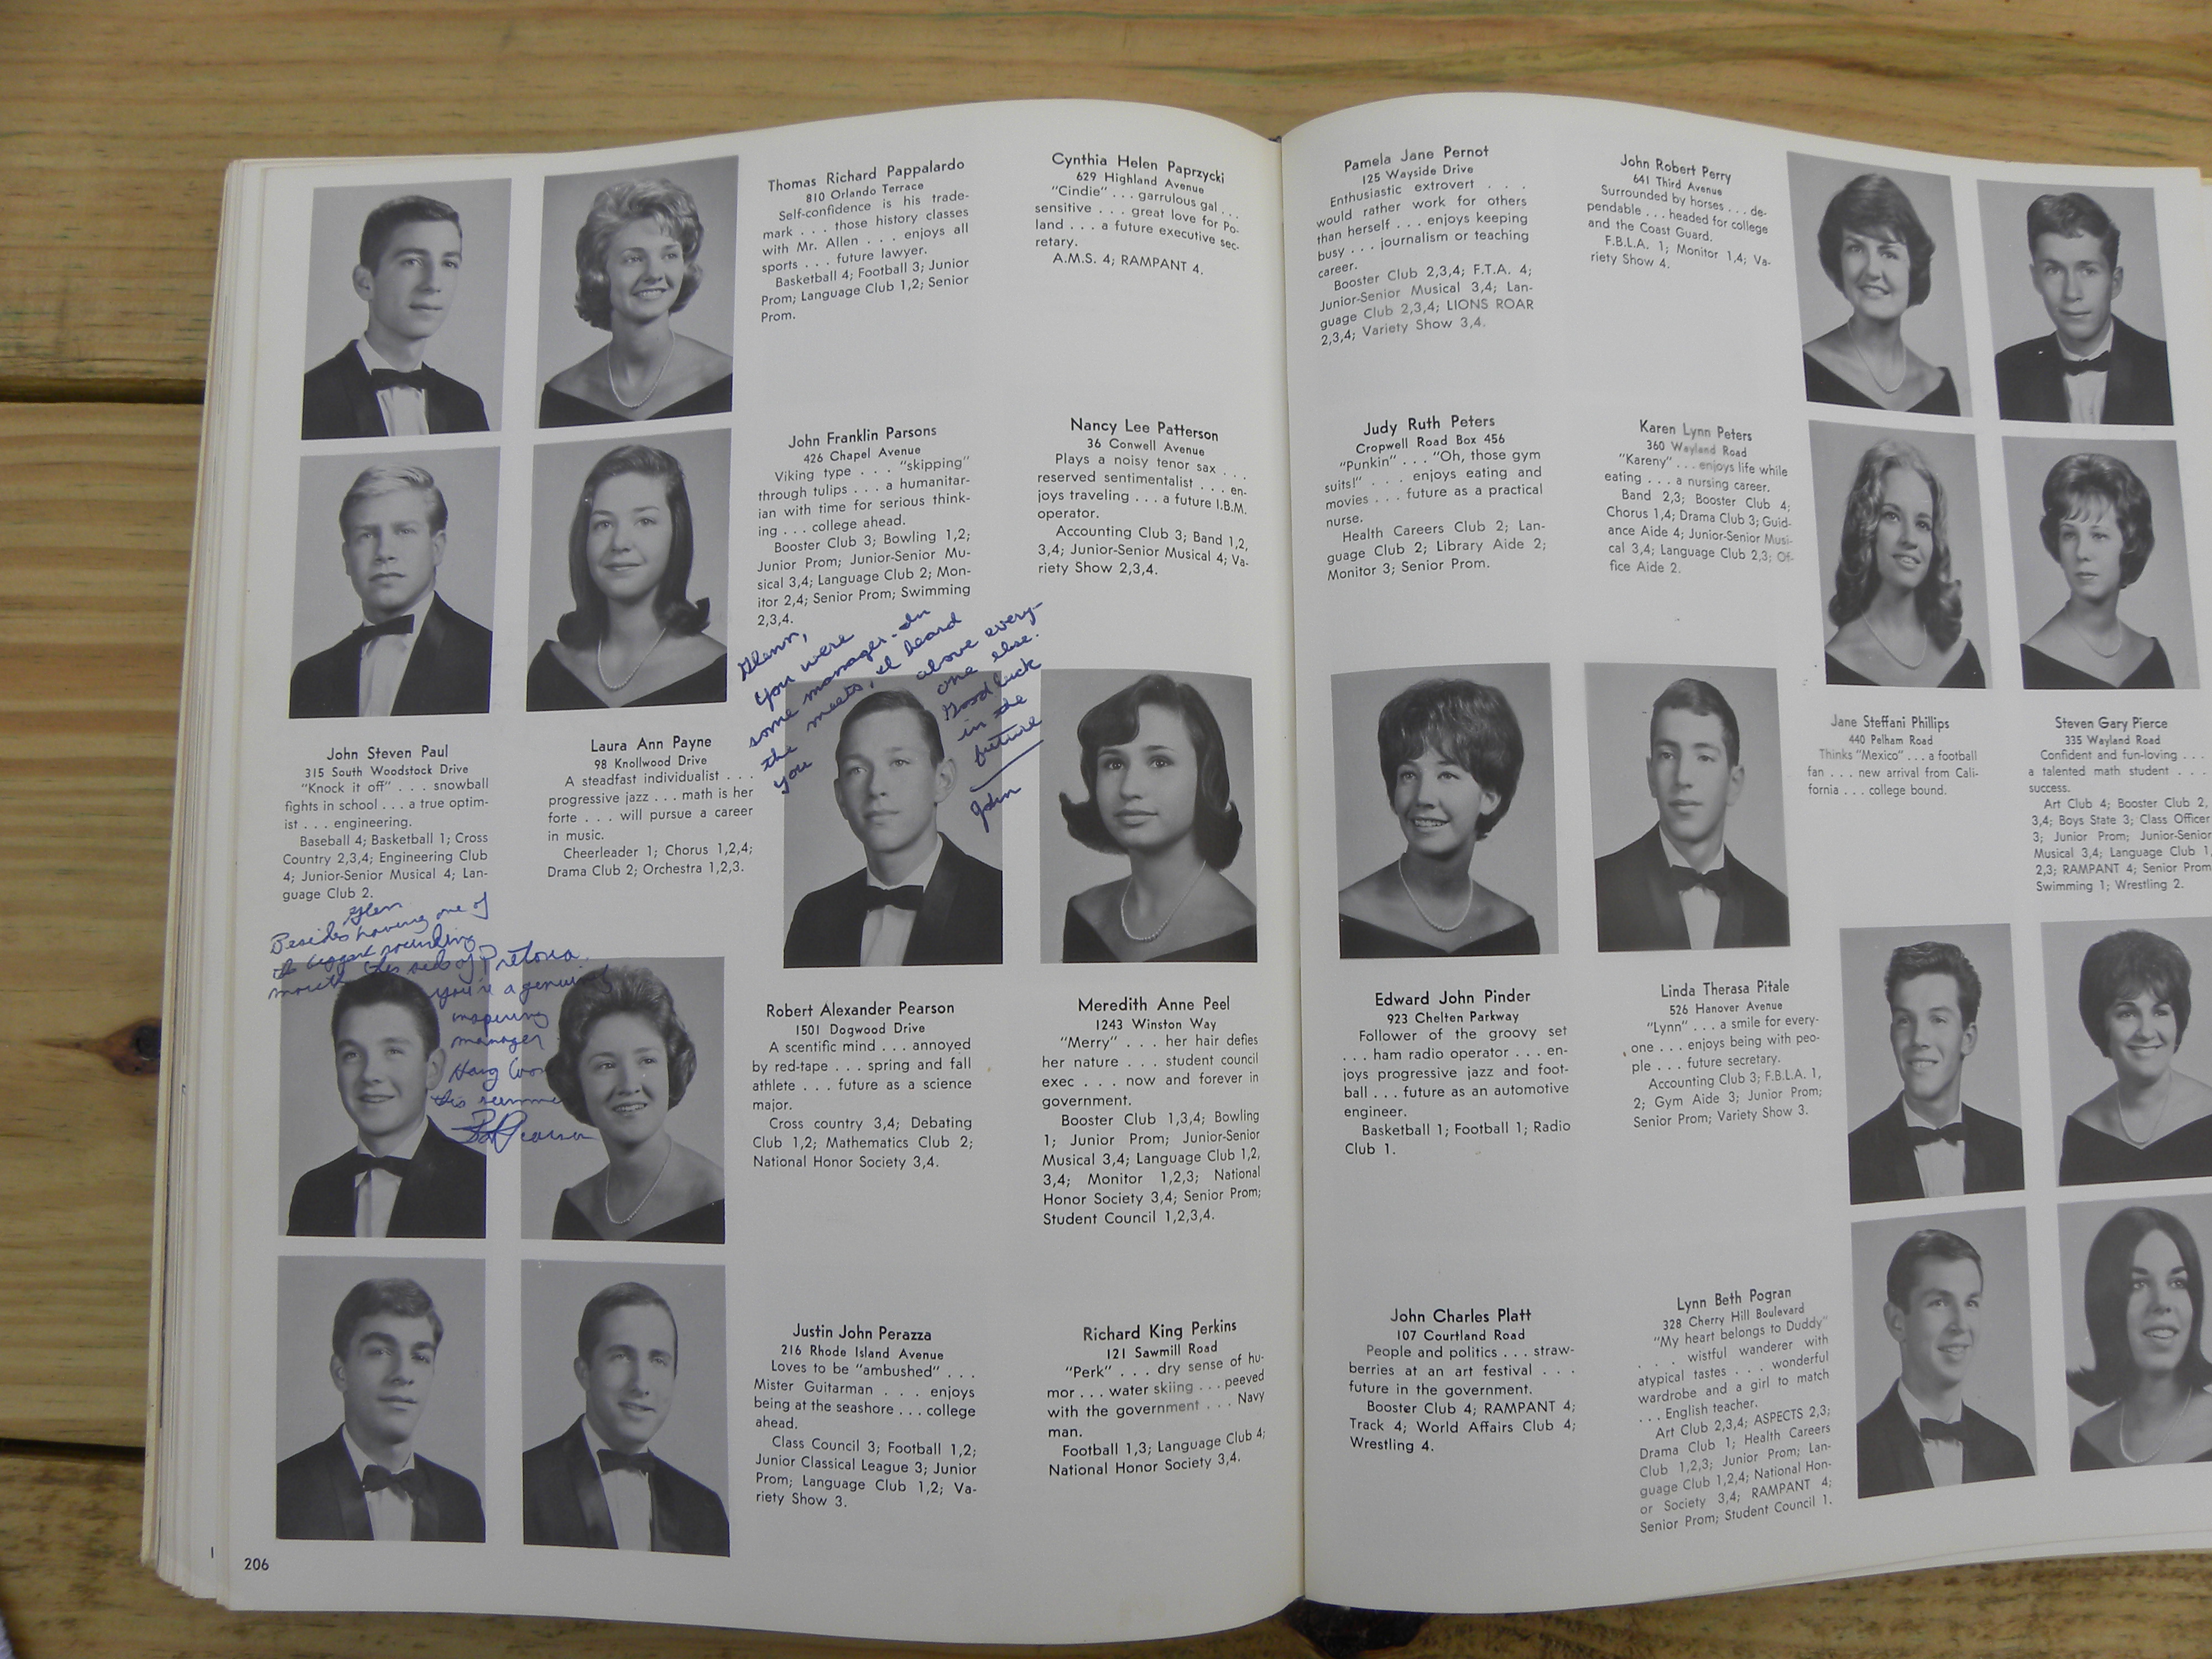 Thomas Richard Pappalardo
810 Orlando Terrace
Self-confidence is his trade-
mark . . . those history classes
with Mr. Allen . . . enjoys all
sports . . . future lawyer.
Basketball 4; Football 3; Junior
Prom; Language Club 1,2; Senior
Prom.
Cynthia Helen Paprzycki
629 Highland Avenue
"Cindie" . . . garrulous gal . . .
sensitive . . . great love for Po-
land . . . a future executive sec-
retary.
A.M.S. 4; RAMPANT 4.
John Franklin Parsons
426 Chapel Avenue
Viking type . . . "skipping"
through tulips . . . a humanitar-
ian with time for serious think-
ing . . . college ahead.
Booster Club 3; Bowling 1,2;
Junior Prom; Junior-Senior Mu-
sical 3,4; Language Club 2; Mon-
itor 2,4; Senior Prom; Swimming
2,3,4.
Nancy Lee Patterson
36 Conwell Avenue
Plays a noisy tenor sax . . .
reserved sentimentalist . . . en-
joys traveling . . . a future I.B.M.
operator.
Accounting Club 3; Band 1,2,
3,4; Junior-Senior Musical 4; Va-
riety Show 2,3,4.
Glenn,
You were
some manager. In
the meets, I heard
you above every-
one else.
Good luck
in the
future
John
John Steven Paul
315 South Woodstock Drive
"Knock it off" . . . snowball
fights in school . . . a true optim-
ist . . . engineering.
Baseball 4; Basketball 1; Cross
Country 2,3,4; Engineering Club
4; Junior-Senior Musical 4; Lan-
guage Club 2.
Laura Ann Payne
98 Knollwood Drive
A steadfast individualist . . .
progressive jazz . . . math is her
forte . . . will pursue a career
in music.
Cheerleader 1; Chorus 1,2,4;
Drama Club 2; Orchestra 1,2,3.
Glen
Besides having one of
the biggest sounding
mouth this side of Pretoria
you're a genuine
inspiring
manager
Hang loose
this summer
Bob Pearson
Robert Alexander Pearson
1501 Dogwood Drive
A scentific mind . . . annoyed
by red-tape . . . spring and fall
athlete . . . future as a science
major.
Cross country 3,4; Debating
Club 1,2; Mathematics Club 2;
National Honor Society 3,4.
Meredith Anne Peel
1243 Winston Way
"Merry" . . . her hair defies
her nature . . . student council
exec . . . now and forever in
government.
Booster Club 1,3,4; Bowling
1; Junior Prom; Junior-Senior
Musical 3,4; Language Club 1,2,
3,4; Monitor 1,2,3; National
Honor Society 3,4; Senior Prom;
Student Council 1,2,3,4.
Justin John Perazza
216 Rhode Island Avenue
Loves to be "ambushed" . . .
Mister Guitarman . . . enjoys
being at the seashore . . . college
ahead.
Class Council 3; Football 1,2;
Junior Classical League 3; Junior
Prom; Language Club 1,2; Va-
riety Show 3.
Richard King Perkins
121 Sawmill Road
"Perk" . . . dry sense of hu-
mor . . . water skiing . . . peeved
with the government . . . Navy
man.
Football 1,3; Language Club 4;
National Honor Society 3,4.
206
Pamela Jane Pernot
125 Wayside Drive
Enthusiastic extrovert . . .
would rather work for others
than herself . . . enjoys keeping
busy . . . journalism or teaching
career.
Booster Club 2,3,4; F.T.A. 4;
Junior-Senior Musical 3,4; Lan-
guage Club 2,3,4; LIONS ROAR
2,3,4; Variety Show 3,4.
John Robert Perry
641 Third Avenue
Surrounded by horses . . . de-
pendable . . . headed for college
and the Coast Guard.
F.B.L.A. 1; Monitor 1,4; Va-
riety Show 4.
Judy Ruth Peters
Cropwell Road Box 456
"Punkin" . . . "Oh, those gym
suits!" . . . enjoys eating and
movies . . . future as a practical
nurse.
Health Careers Club 2; Lan-
guage Club 2; Library Aide 2;
Monitor 3; Senior Prom.
Karen Lynn Peters
360 Wayland Road
"Kareny" . . . enjoys life while
eating . . . a nursing career.
Band 2,3; Booster Club 4;
Chorus 1,4; Drama Club 3; Guid-
ance Aide 4; Junior-Senior Musi-
cal 3,4; Language Club 2,3; Of-
fice Aide 2.
Jane Steffani Phillips
440 Pelham Road
Thinks "Mexico" . . . a football
fan . . . new arrival from Cali-
fornia . . . college bound.
Steven Gary Pierce
335 Wayland Road
Confident and fun-loving . . .
a talented math student . . .
success.
Art Club 4; Booster Club 2,
3,4; Boys State 3; Class Officer
3; Junior Prom; Junior-Senior
Musical 3,4; Language Club 1,
2,3; RAMPANT 4; Senior Prom
Swimming 1; Wrestling 2.
Edward John Pinder
923 Chelten Parkway
Follower of the groovy set
. . . ham radio operator . . . en-
joys progressive jazz and foot-
ball . . . future as an automotive
engineer.
Basketball 1; Football 1; Radio
Club 1.
Linda Therasa Pitale
526 Hanover Avenue
"Lynn" . . . a smile for every-
one . . . enjoys being with peo-
ple . . . future secretary.
Accounting Club 3; F.B.L.A. 1,
2; Gym Aide 3; Junior Prom;
Senior Prom; Variety Show 3.
John Charles Platt
107 Courtland Road
People and politics . . . straw-
berries at an art festival . . .
future in the government.
Booster Club 4; RAMPANT 4;
Track 4; World Affairs Club 4;
Wrestling 4.
Lynn Beth Pogran
328 Cherry Hill Boulevard
"My heart belongs to Duddy"
. . . wistful wanderer with
atypical tastes . . . wonderful
wardrobe and a girl to match
. . . English teacher.
Art Club 2,3,4; ASPECTS 2,3;
Drama Club 1; Health Careers
Club 1,2,3; Junior Prom; Lan-
guage Club 1,2,4; National Hon-
or Society 3,4; RAMPANT 4;
Senior Prom; Student Council 1.